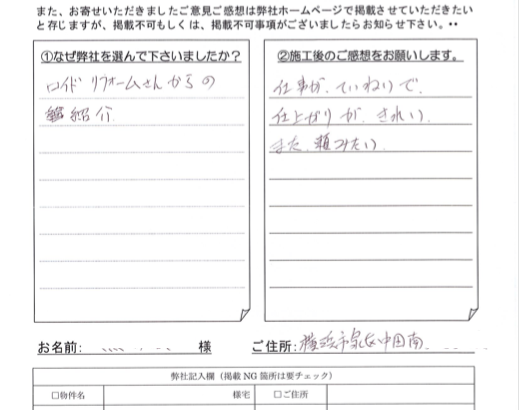 また、お寄せいただきましたご意見ご感想は弊社ホームページで掲載させていただきたい
と存じますが、掲載不可もしくは、掲載不可事項がございましたらお知らせ下さい。••
①なぜ弊社を選んで下さいましたか？
ロイド リフォームさんからの
紹介
②施工後のご感想をお願いします。
仕事が、ていねいで、
仕上がりが、きれい、
また、頼みたい
お名前: 様
ご住所: 横浜市泉区中田南
弊社記入欄（掲載 NG 箇所は要チェック）
□物件名 様宅 □ご住所